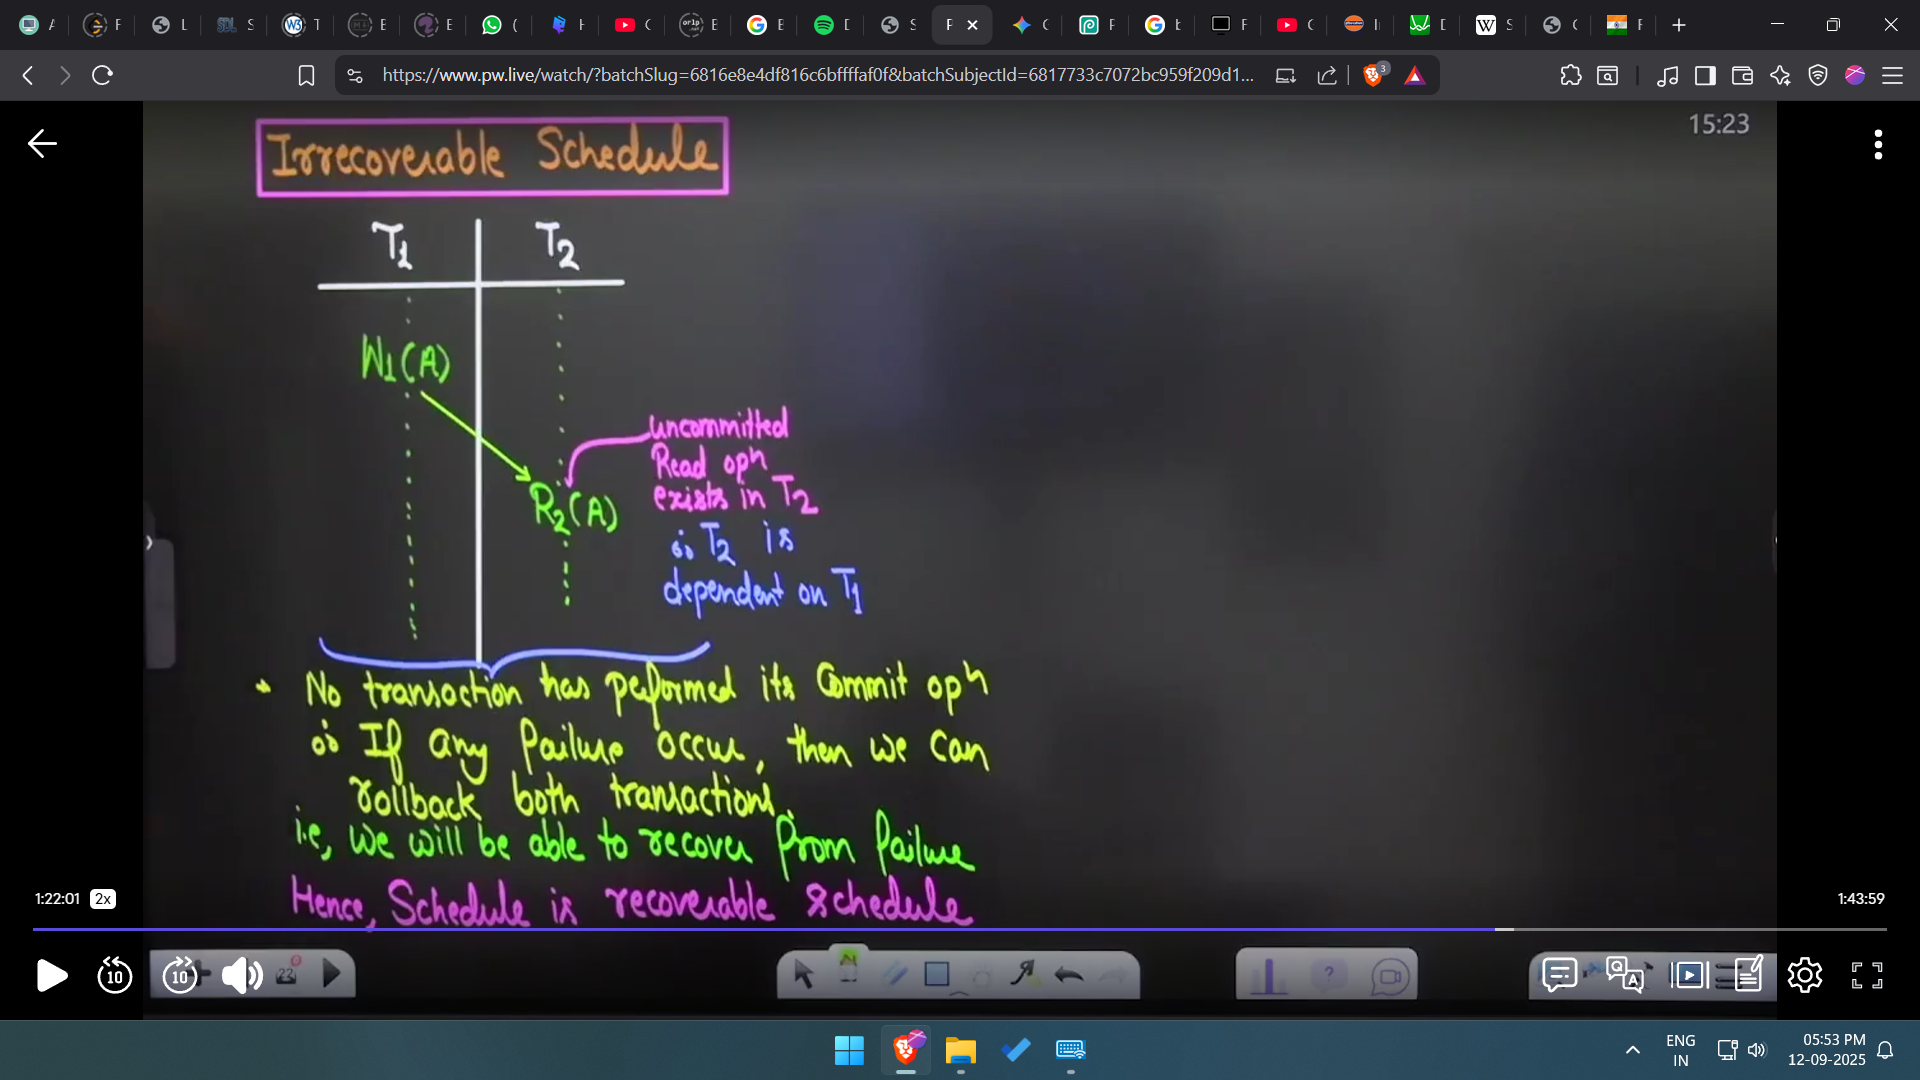 https://www.pw.live/watch/?batchSlug=6816e8e4df816c6bffffaf0f&batchSubjectId=6817733c7072bc959f209d1...
3
15:23
Irrecoverable Schedule
T1 T2
W1(A)
uncommitted
Read opn
exists in T2
R2(A)
∴ T2 is
dependent on T1
* No transaction has performed its Commit opn
∴ If any failure occur, then we can
rollback both transactions.
i.e, we will be able to recover from failure
Hence, Schedule is recoverable schedule
1:22:01 2x
1:43:59
10
10
22
ENG
IN
05:53 PM
12-09-2025